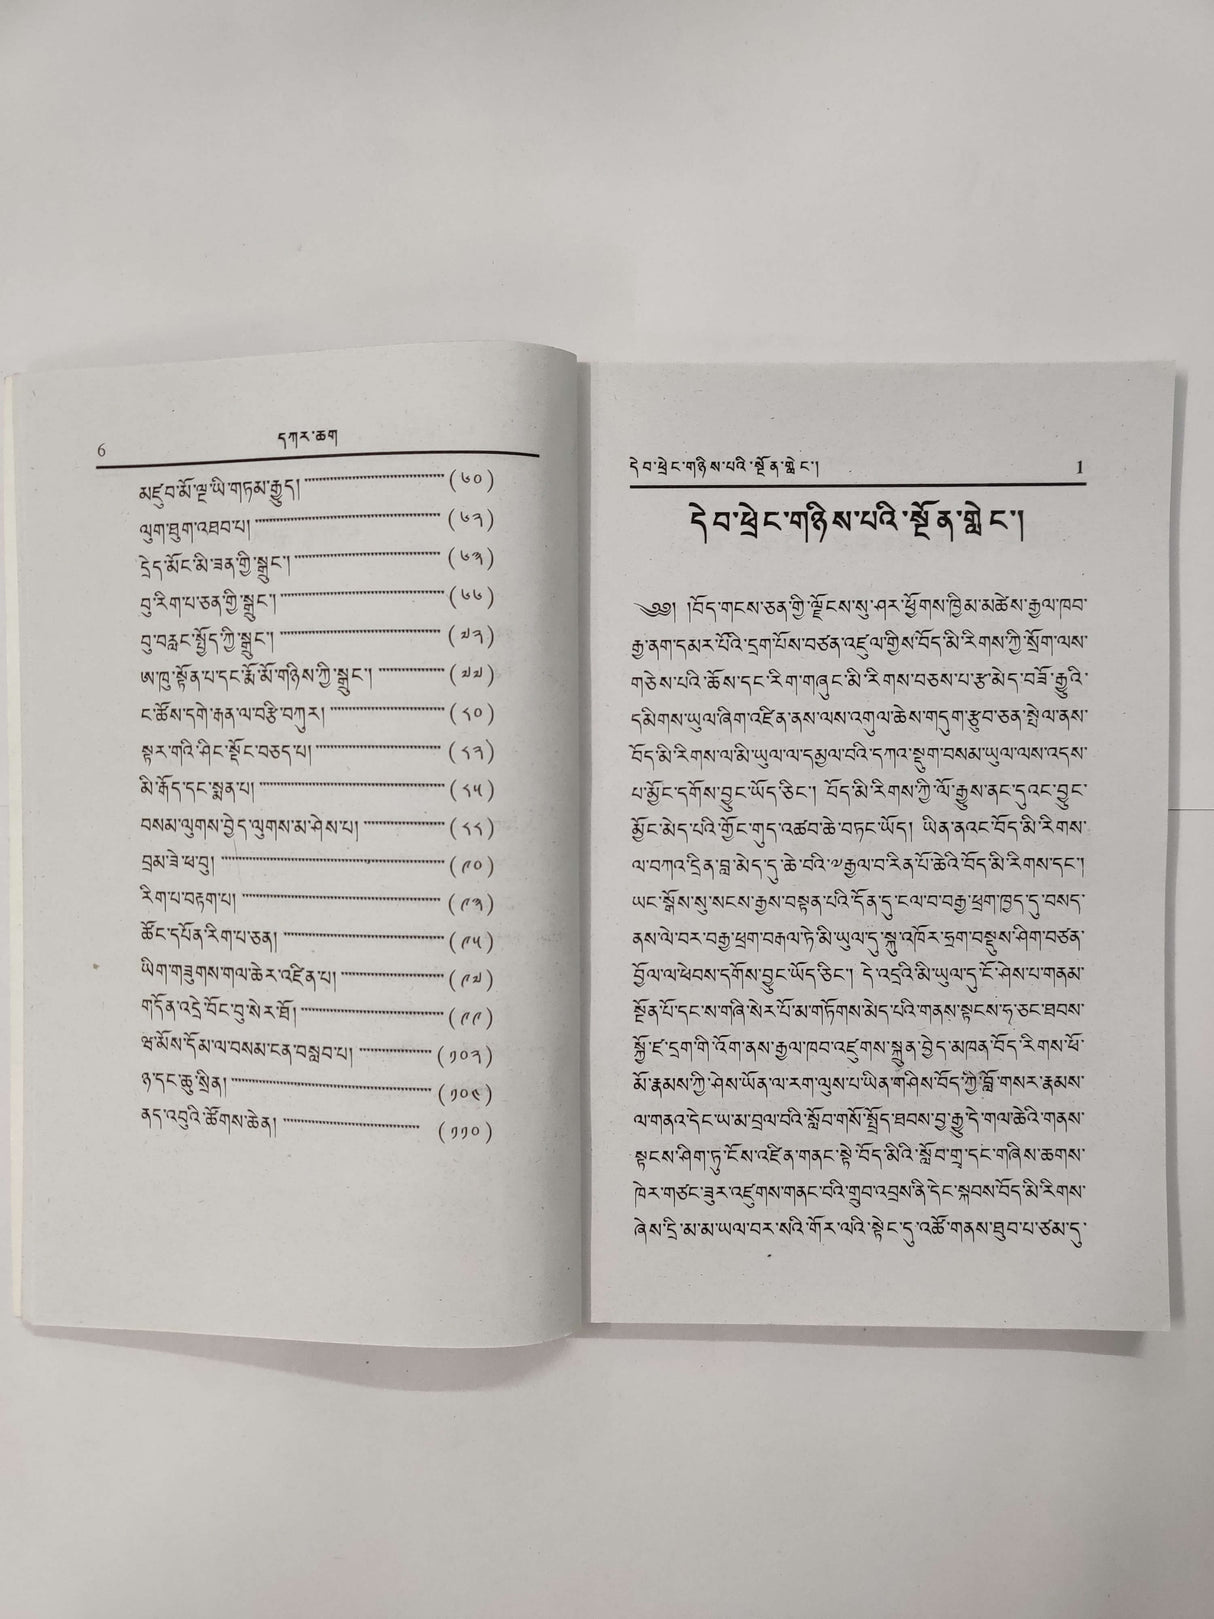 6
དཀར་ཆག
མཛུབ་མོ་ལྔ་ཡི་གཏམ་རྒྱུད། (༦༠)
ལུག་ཐུག་འཐབ་པ། (༦༢)
དྲེད་མོང་མི་ཟན་གྱི་སྒྲུང་། (༦༣)
བུ་རིག་པ་ཅན་གྱི་སྒྲུང་། (༦༦)
བུ་བརླང་སྤྱོད་ཀྱི་སྒྲུང་། (༧༢)
ཨ་ཁུ་སྟོན་པ་དང་རྨོ་མོ་གཉིས་ཀྱི་སྒྲུང་། (༧༧)
ང་ཚོས་དགེ་རྒན་ལ་བརྩི་བཀུར། (༨༠)
སྟར་གའི་ཤིང་སྡོང་བཅད་པ། (༨༢)
མི་རྒོད་དང་སྨན་པ། (༨༥)
བསམ་ལུགས་བྱེད་ལུགས་མ་ཤེས་པ། (༨༨)
བྲམ་ཟེ་ཕ་བུ། (༩༠)
རིག་པ་བརྟག་པ། (༩༣)
ཚོང་དཔོན་རིག་པ་ཅན། (༩༥)
ཡིག་གཟུགས་གལ་ཆེར་འཛིན་པ། (༩༧)
གདོན་འདྲེ་བོང་བུ་སེར་ཐོ། (༩༩)
ཝ་མོས་དོམ་ལ་བསམ་ངན་བསླབ་པ། (༡༠༢)
ཉ་དང་ཆུ་སྲིན། (༡༠༤)
ནད་འབུའི་ཚོགས་ཆེན། (༡༡༠)
དེབ་ཕྲེང་གཉིས་པའི་སྔོན་གླེང་།
1
དེབ་ཕྲེང་གཉིས་པའི་སྔོན་གླེང་།
༄༅། །བོད་གངས་ཅན་གྱི་ལྗོངས་སུ་ཤར་ཕྱོགས་ཁྱིམ་མཚེས་རྒྱལ་ཁབ་
རྒྱ་ནག་དམར་པོའི་དྲག་པོས་བཙན་འཛུལ་གྱིས་བོད་མི་རིགས་ཀྱི་སྲོག་ལས་
གཅེས་པའི་ཆོས་དང་རིག་གཞུང་མི་རིགས་བཅས་པ་རྩ་མེད་བཟོ་རྒྱུའི་
དམིགས་ཡུལ་ཞིག་འཛིན་ནས་ལས་འགུལ་ཆེས་གདུག་རྩུབ་ཅན་སྤེལ་ནས་
བོད་མི་རིགས་ལ་མི་ཡུལ་ལ་དམྱལ་བའི་དཀའ་སྡུག་བསམ་ཡུལ་ལས་འདས་
པ་མྱོང་དགོས་བྱུང་ཡོད་ཅིང་། བོད་མི་རིགས་ཀྱི་ལོ་རྒྱུས་ནང་དུའང་བྱུང་
མྱོང་མེད་པའི་གྱོང་གུད་འཚབ་ཆེ་བཏང་ཡོད། ཡིན་ནའང་བོད་མི་རིགས་
ལ་བཀའ་དྲིན་བླ་མེད་དུ་ཆེ་བའི་༸རྒྱལ་བ་རིན་པོ་ཆེའི་བོད་མི་རིགས་དང་།
ཡང་སྒོས་སུ་སངས་རྒྱས་བསྟན་པའི་དོན་དུ་ངལ་བ་བརྒྱ་ཕྲག་ཁྱད་དུ་བསད་
ནས་ལེ་བར་བརྒྱ་ཕྲག་བརྒལ་ཏེ་མི་ཡུལ་དུ་སྐུ་འཁོར་ཧྲག་བསྡུས་ཤིག་བཙན་
བྱོལ་ལ་ཕེབས་དགོས་བྱུང་ཡོད་ཅིང་། དེ་འདྲའི་མི་ཡུལ་དུ་ངོ་ཤེས་པ་གནམ་
སྔོན་པོ་དང་ས་གཞི་སེར་པོ་མ་གཏོགས་མེད་པའི་གནས་སྟངས་ཧ་ཅང་ཐབས་
སྐྱོ་ཛ་དྲག་གི་འོག་ནས་རྒྱལ་ཁབ་འཛུགས་སྐྲུན་བྱེད་མཁན་བོད་རིགས་ཕོ་
མོ་རྣམས་ཀྱི་ཤེས་ཡོན་ལ་རག་ལུས་པ་ཡིན་གཤིས་བོད་ཀྱི་བློ་གསར་རྣམས་
ལ་གནའ་དེང་ཡ་མ་བྲལ་བའི་སློབ་གསོ་སྤྲོད་ཐབས་བྱ་རྒྱུ་དེ་གལ་ཆེའི་གནས་
སྟངས་ཤིག་ཏུ་ངོས་འཛིན་གནང་སྟེ་བོད་མིའི་སློབ་གྲྭ་དང་གཞིས་ཆགས་
ཁེར་གཙང་ཟུར་འཛུགས་གནང་བའི་གྲུབ་འབྲས་ནི་དེང་སྐབས་བོད་མི་རིགས་
ཞེས་དྲི་མ་མ་ཡལ་བར་སའི་གོར་ལའི་སྟེང་དུ་འཚོ་གནས་ཐུབ་པ་ཙམ་དུ་